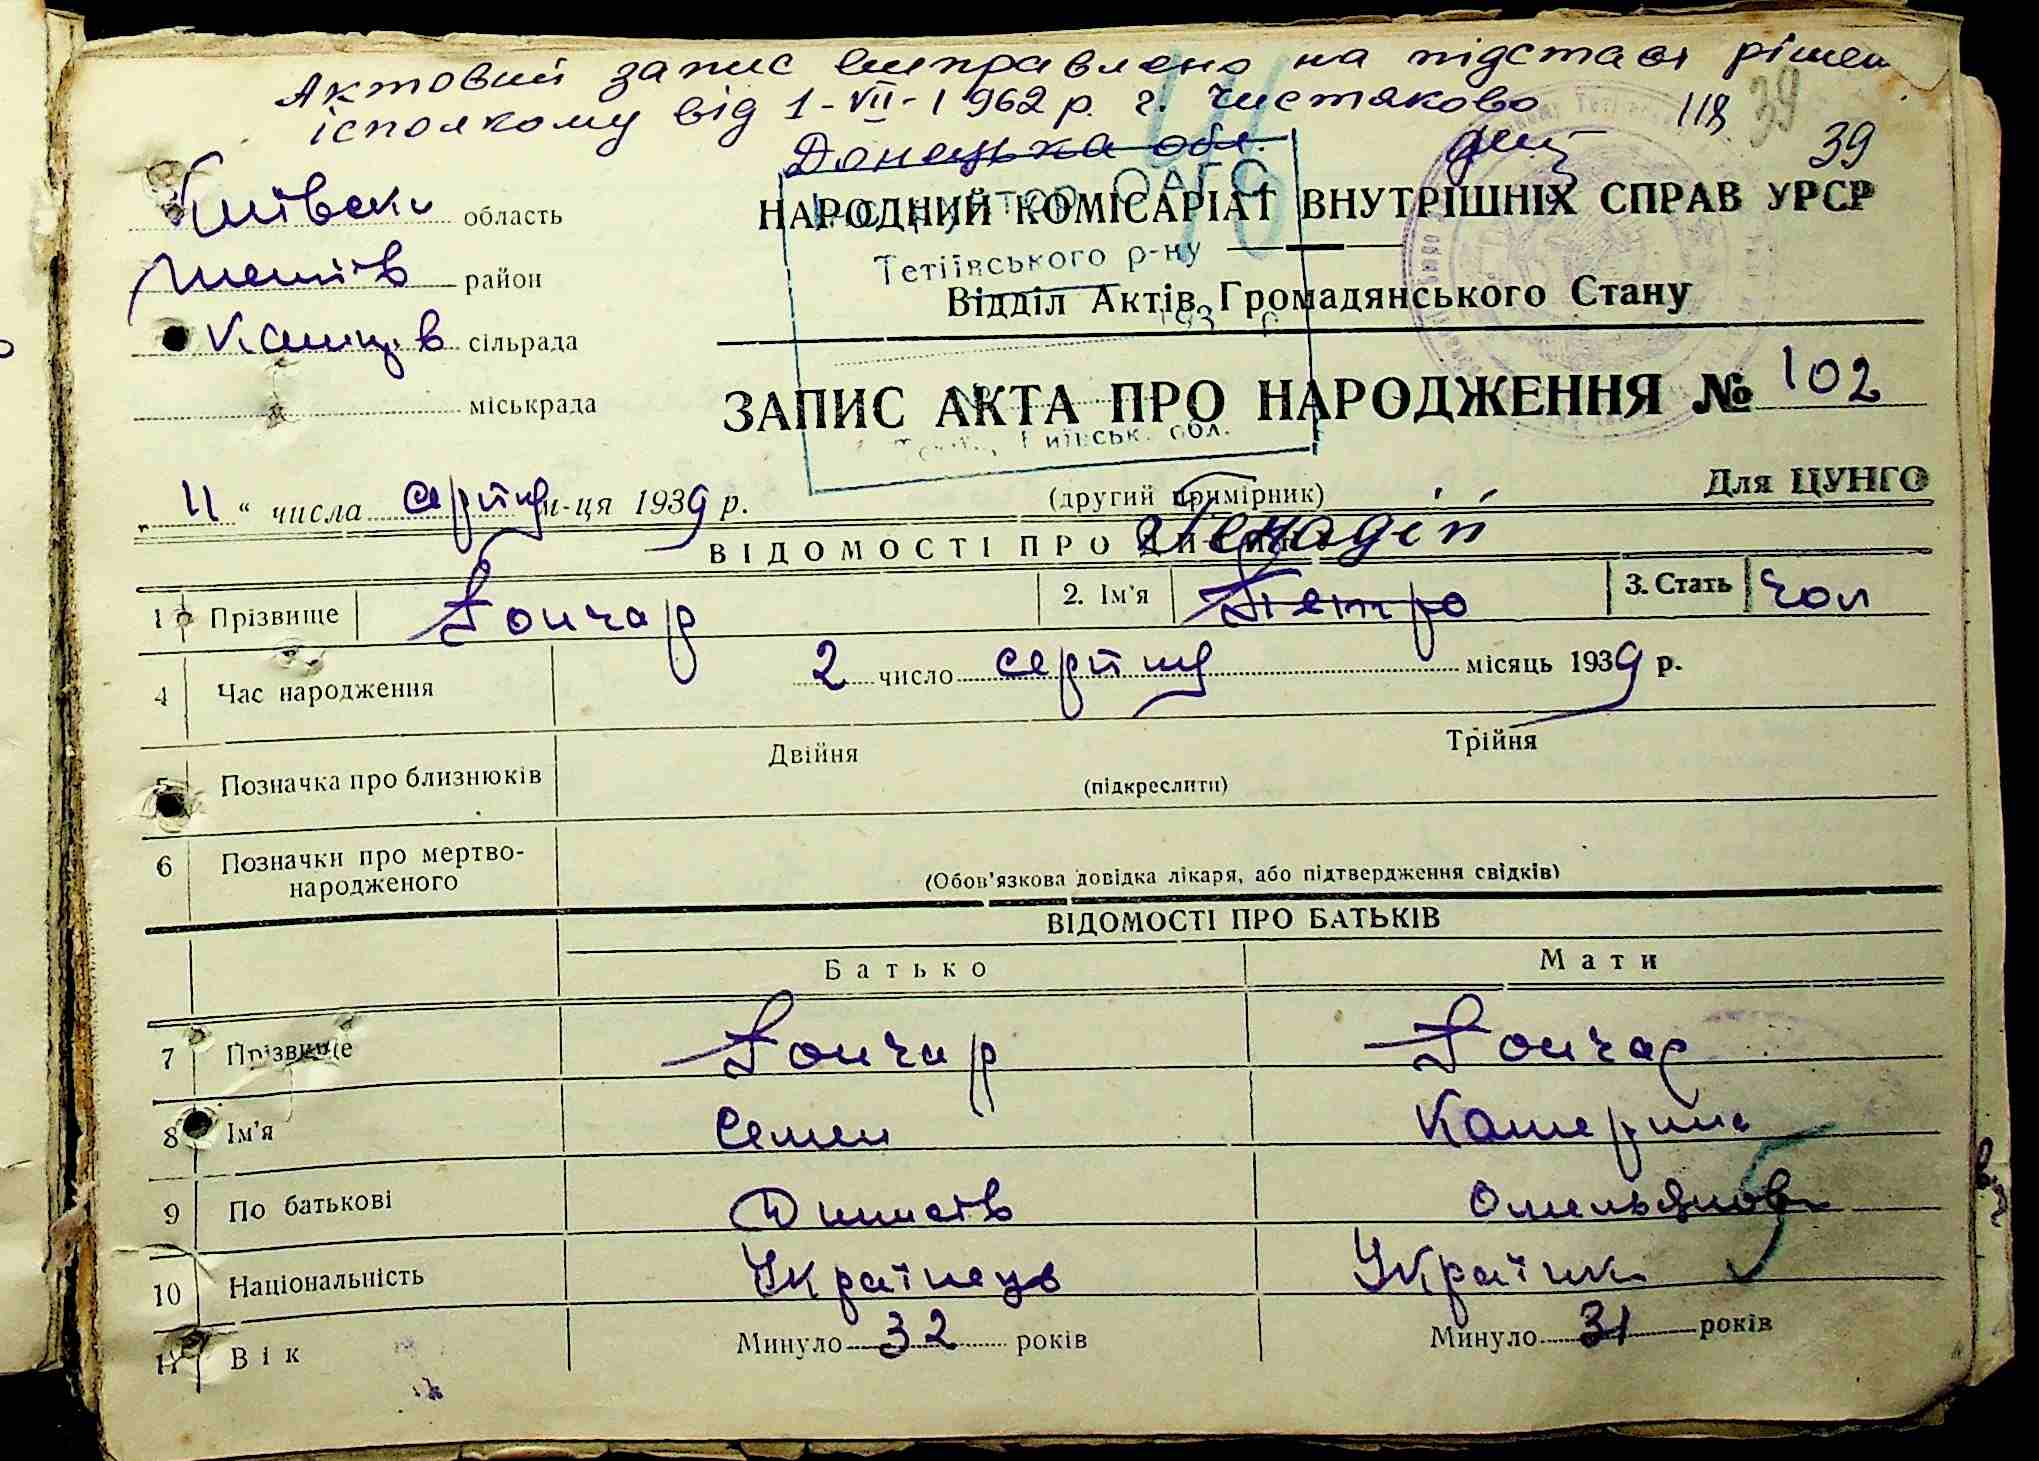 Актовий запис виправлено на підставі рішен
ісполкому від 1-VII-1962 р. г. Чистяково
Донецька обл.
118 39
39
Київськ область
НАРОДНИЙ КОМІСАРІАТ ВНУТРІШНІХ СПРАВ УРСР
Тетіїв район
Тетіївського р-ну
Відділ Актів Громадянського Стану
сільрада
міськрада
ЗАПИС АКТА ПРО НАРОДЖЕННЯ № 102
„ 11 “ числа серпня м-ця 1939 р.
(другий примірник)
Для ЦУНГО
Генадій
ВІДОМОСТІ ПРО ДИТИНУ
1 Прізвище Гончар 2. Ім'я Петро 3. Стать чол
4 Час народження 2 число серпня місяць 1939 р.
5 Позначка про близнюків Двійня Трійня
(підкреслити)
6 Позначки про мертво-
народженого
(Обов'язкова довідка лікаря, або підтвердження свідків)
ВІДОМОСТІ ПРО БАТЬКІВ
Батько Мати
7 Прізвище Гончар Гончар
8 Ім'я Семен Катерина
9 По батькові Омельянов
10 Національність Українець Українк
11 Вік Минуло 32 років Минуло 31 років